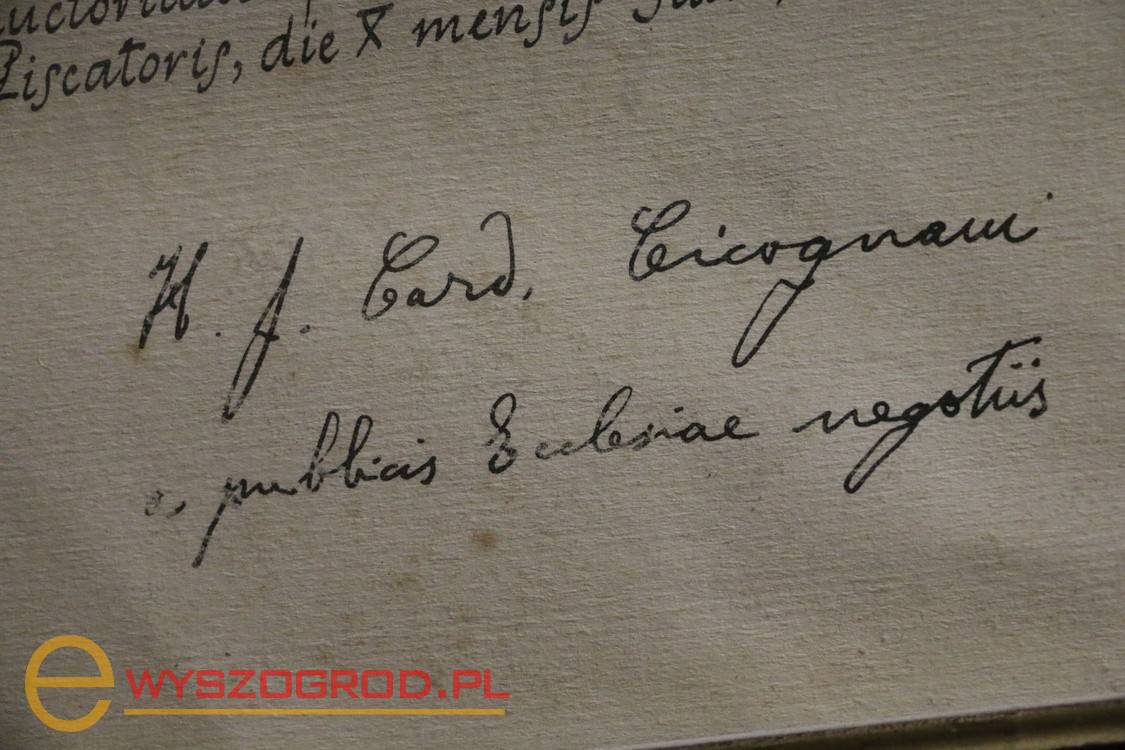 Piscatoris, die X mensis
H. J. Card. Cicognani
a publicis Ecclesiae negotiis
eWYSZOGROD.PL